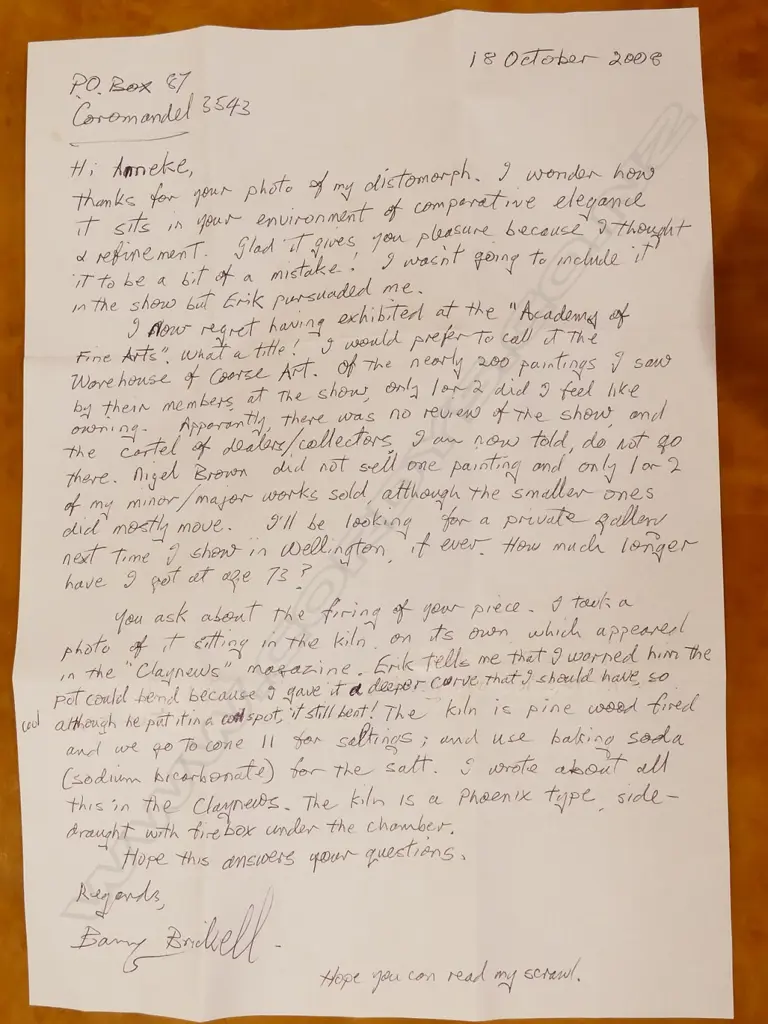 18 October 2008
P.O. Box 87
Coromandel 3543
Hi Anneke,
thanks for your photo of my distomorph. I wonder how
it sits in your environment of comparative elegance
& refinement. Glad it gives you pleasure because I thought
it to be a bit of a mistake! I wasn't going to include it
in the show but Erik pursuaded me.
I now regret having exhibited at the "Academy of
Fine Arts". What a title! I would prefer to call it the
Warehouse of Coarse Art. Of the nearly 200 paintings I saw
by their members, at the show, only 1 or 2 did I feel like
owning. Apparantly, there was no review of the show, and
the cartel of dealers/collectors, I am now told, do not go
there. Nigel Brown did not sell one painting and only 1 or 2
of my minor/major works sold, although the smaller ones
did mostly move. I'll be looking for a private gallery
next time I show in Wellington, if ever. How much longer
have I got at age 73?
You ask about the firing of your piece. I took a
photo of it sitting in the kiln, on its own, which appeared
in the "Claynews" magazine. Erik tells me that I warned him the
pot could bend because I gave it a deeper curve that I should have, so
cool although he put it in a cool spot, it still bent! The kiln is pine wood fired
and we go to cone 11 for saltings; and use baking soda
(sodium bicarbonate) for the salt. I wrote about all
this in the Claynews. The kiln is a Phoenix type, side-
draught with firebox under the chamber.
Hope this answers your questions.
Regards,
Barry Brickell
Hope you can read my scrawl.